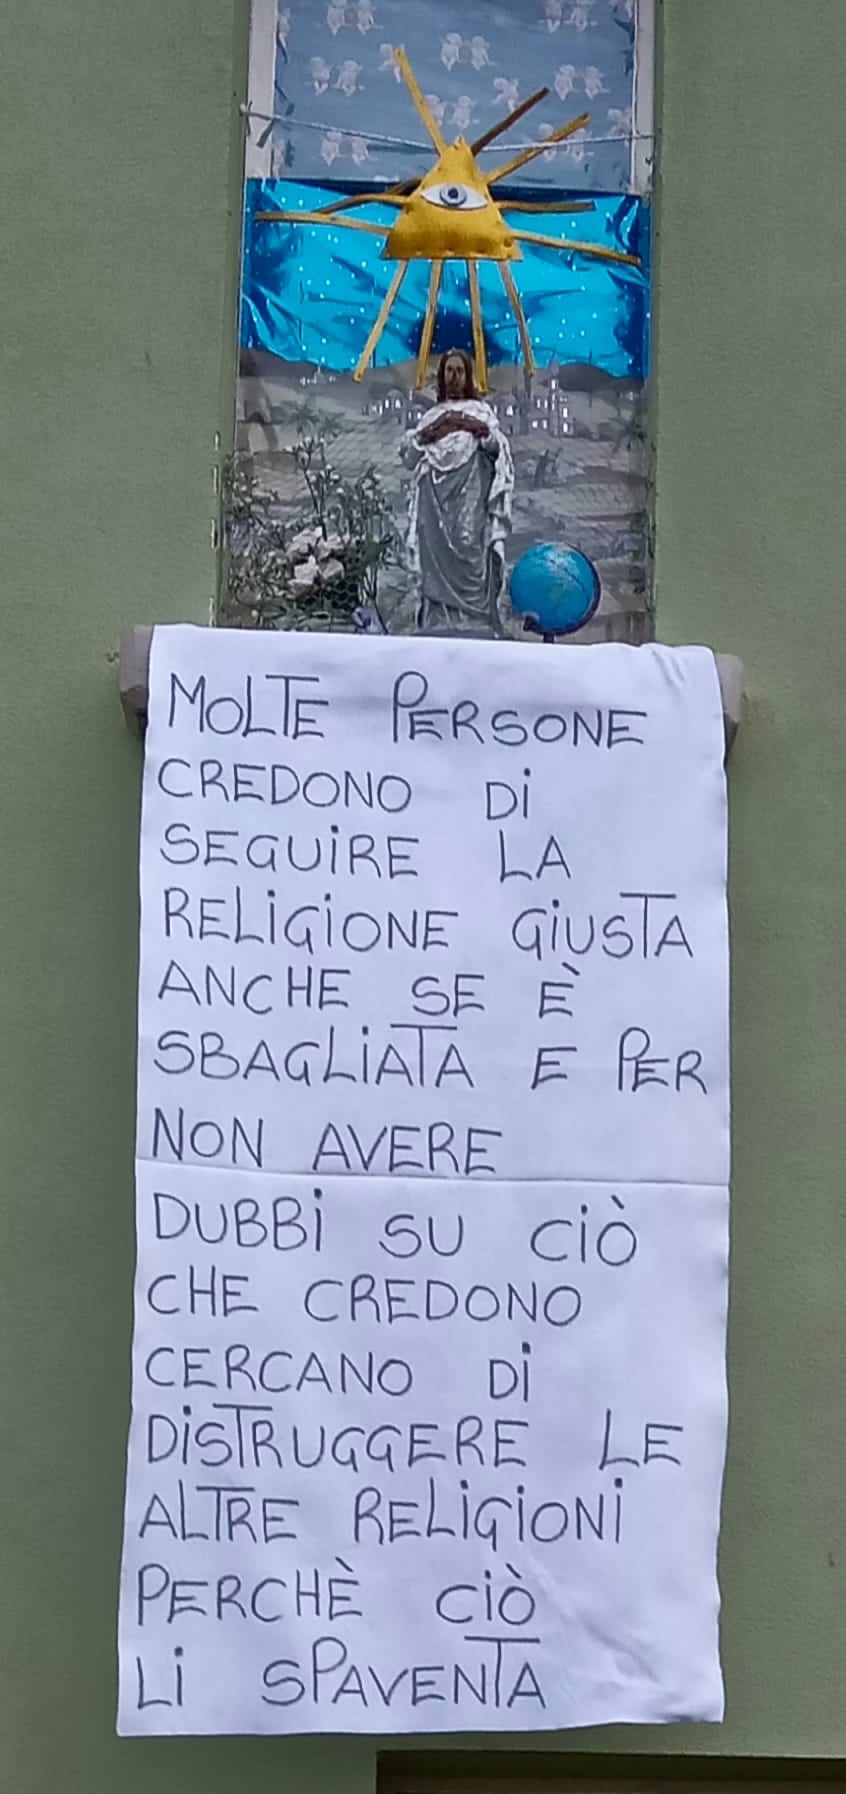 MOLTE PERSONE
CREDONO Di
SEGUiRE LA
RELiGiONE GiUSTA
ANCHE SE È
SBAGLiATA E PER
NON AVERE
DUBBi SU CiÒ
CHE CREDONO
CERCANO Di
DiSTRUGGERE LE
ALTRE RELiGiONi
PERCHÈ CiÒ
Li SPAVENTA